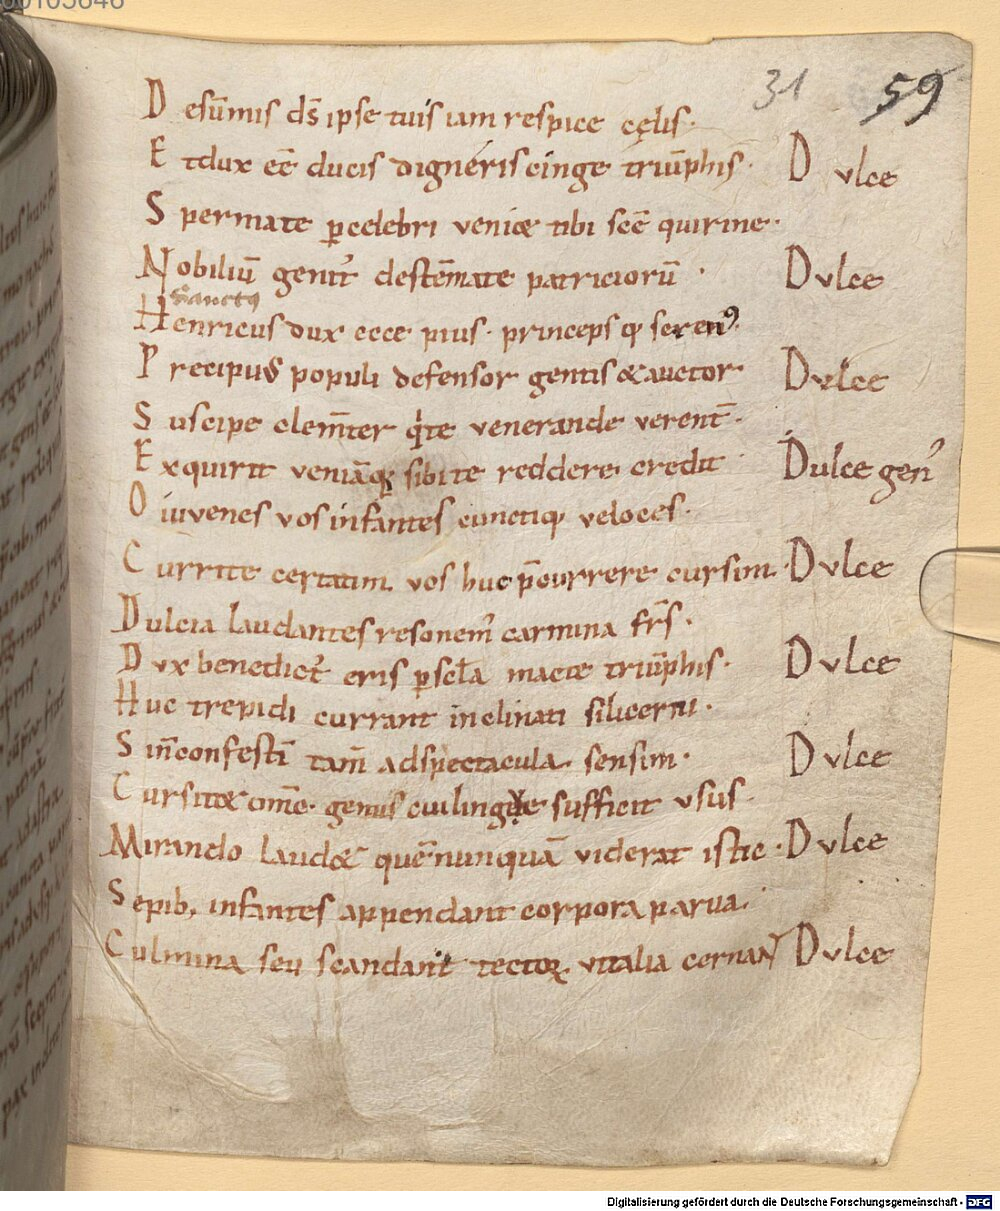 00105646
31 59
D esūmis ds̄ ipse tuis iam respice cęlis·
E t dux eē ducis digneris cinge triūphis· D ulce
S permate ꝑcelebri veniæ tibi scē quirine·
Nobiliū genit᷒ de stēmate patriciorū · Dulce
sanctꝰ
Henricus dux ecce pius· princeps q; serenꝰ·
P recipuus populi defensor gentis & auctor· Dulce
S uscipe clem̄ter qͥ te venerande verent᷒·
E xquirit veniāq; sibi te reddere credit · Dulce gen᷒
O iuvenes vos infantes cunctiq; veloces·
C urrite certatim vos huc p̄currere cursim· Dulce
Dulcia laudantes resonem᷒ carmina frs̄·
D ux benedict᷒ eris ꝑ scl̄a macte triūphis· Dulce
Huc trepidi currant inclinati silicerni·
S in̄ confestī tam̄ ad spectacula sensim· Dulce
C ursitæ om̄e genus cui linguæ sufficit usus·
Mirando laudæ quē nunquā viderat istic· Dulce
S epib; infantes appendant corpora parva·
C ulmina seu scandant tectoꝝ vitalia cernant Dulce
Digitalisierung gefördert durch die Deutsche Forschungsgemeinschaft - DFG